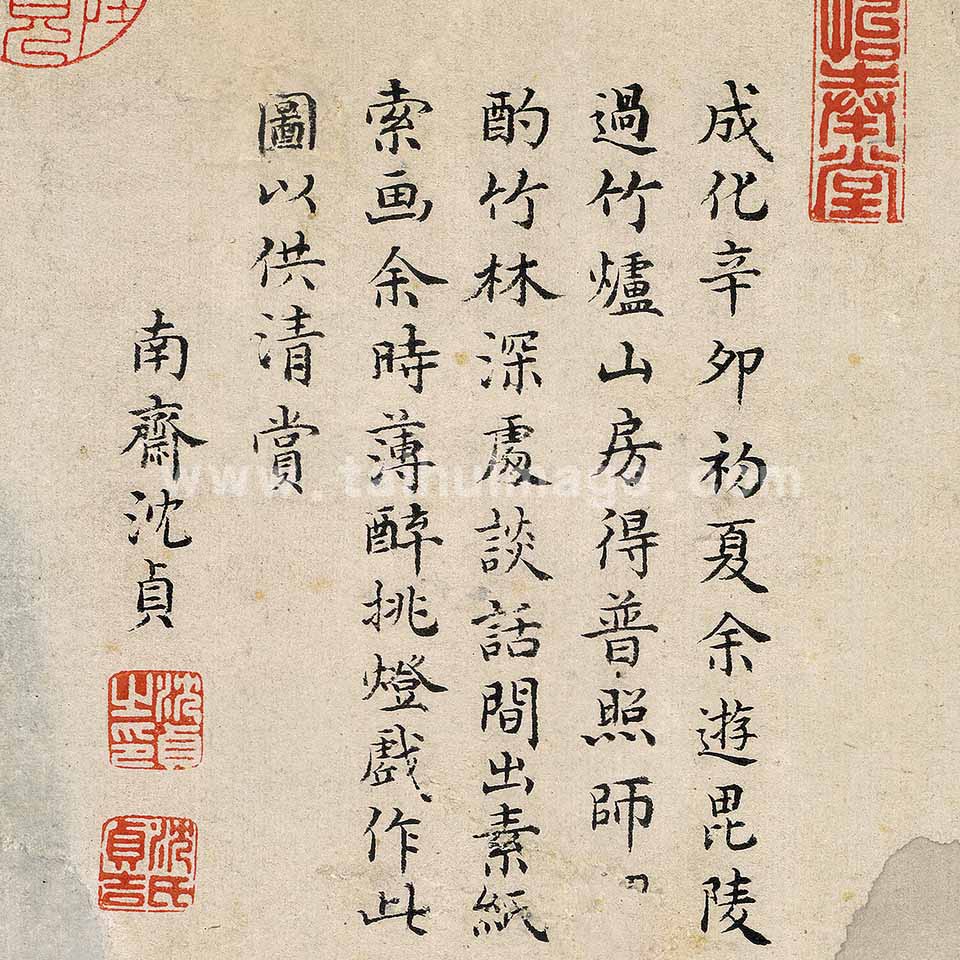 成化辛卯初夏余遊毘陵
過竹爐山房得普照師
酌竹林深處談話間出素紙
索画余時薄醉挑燈戲作此
圖以供清賞
南齋沈貞
沈貞之印
沈氏貞吉